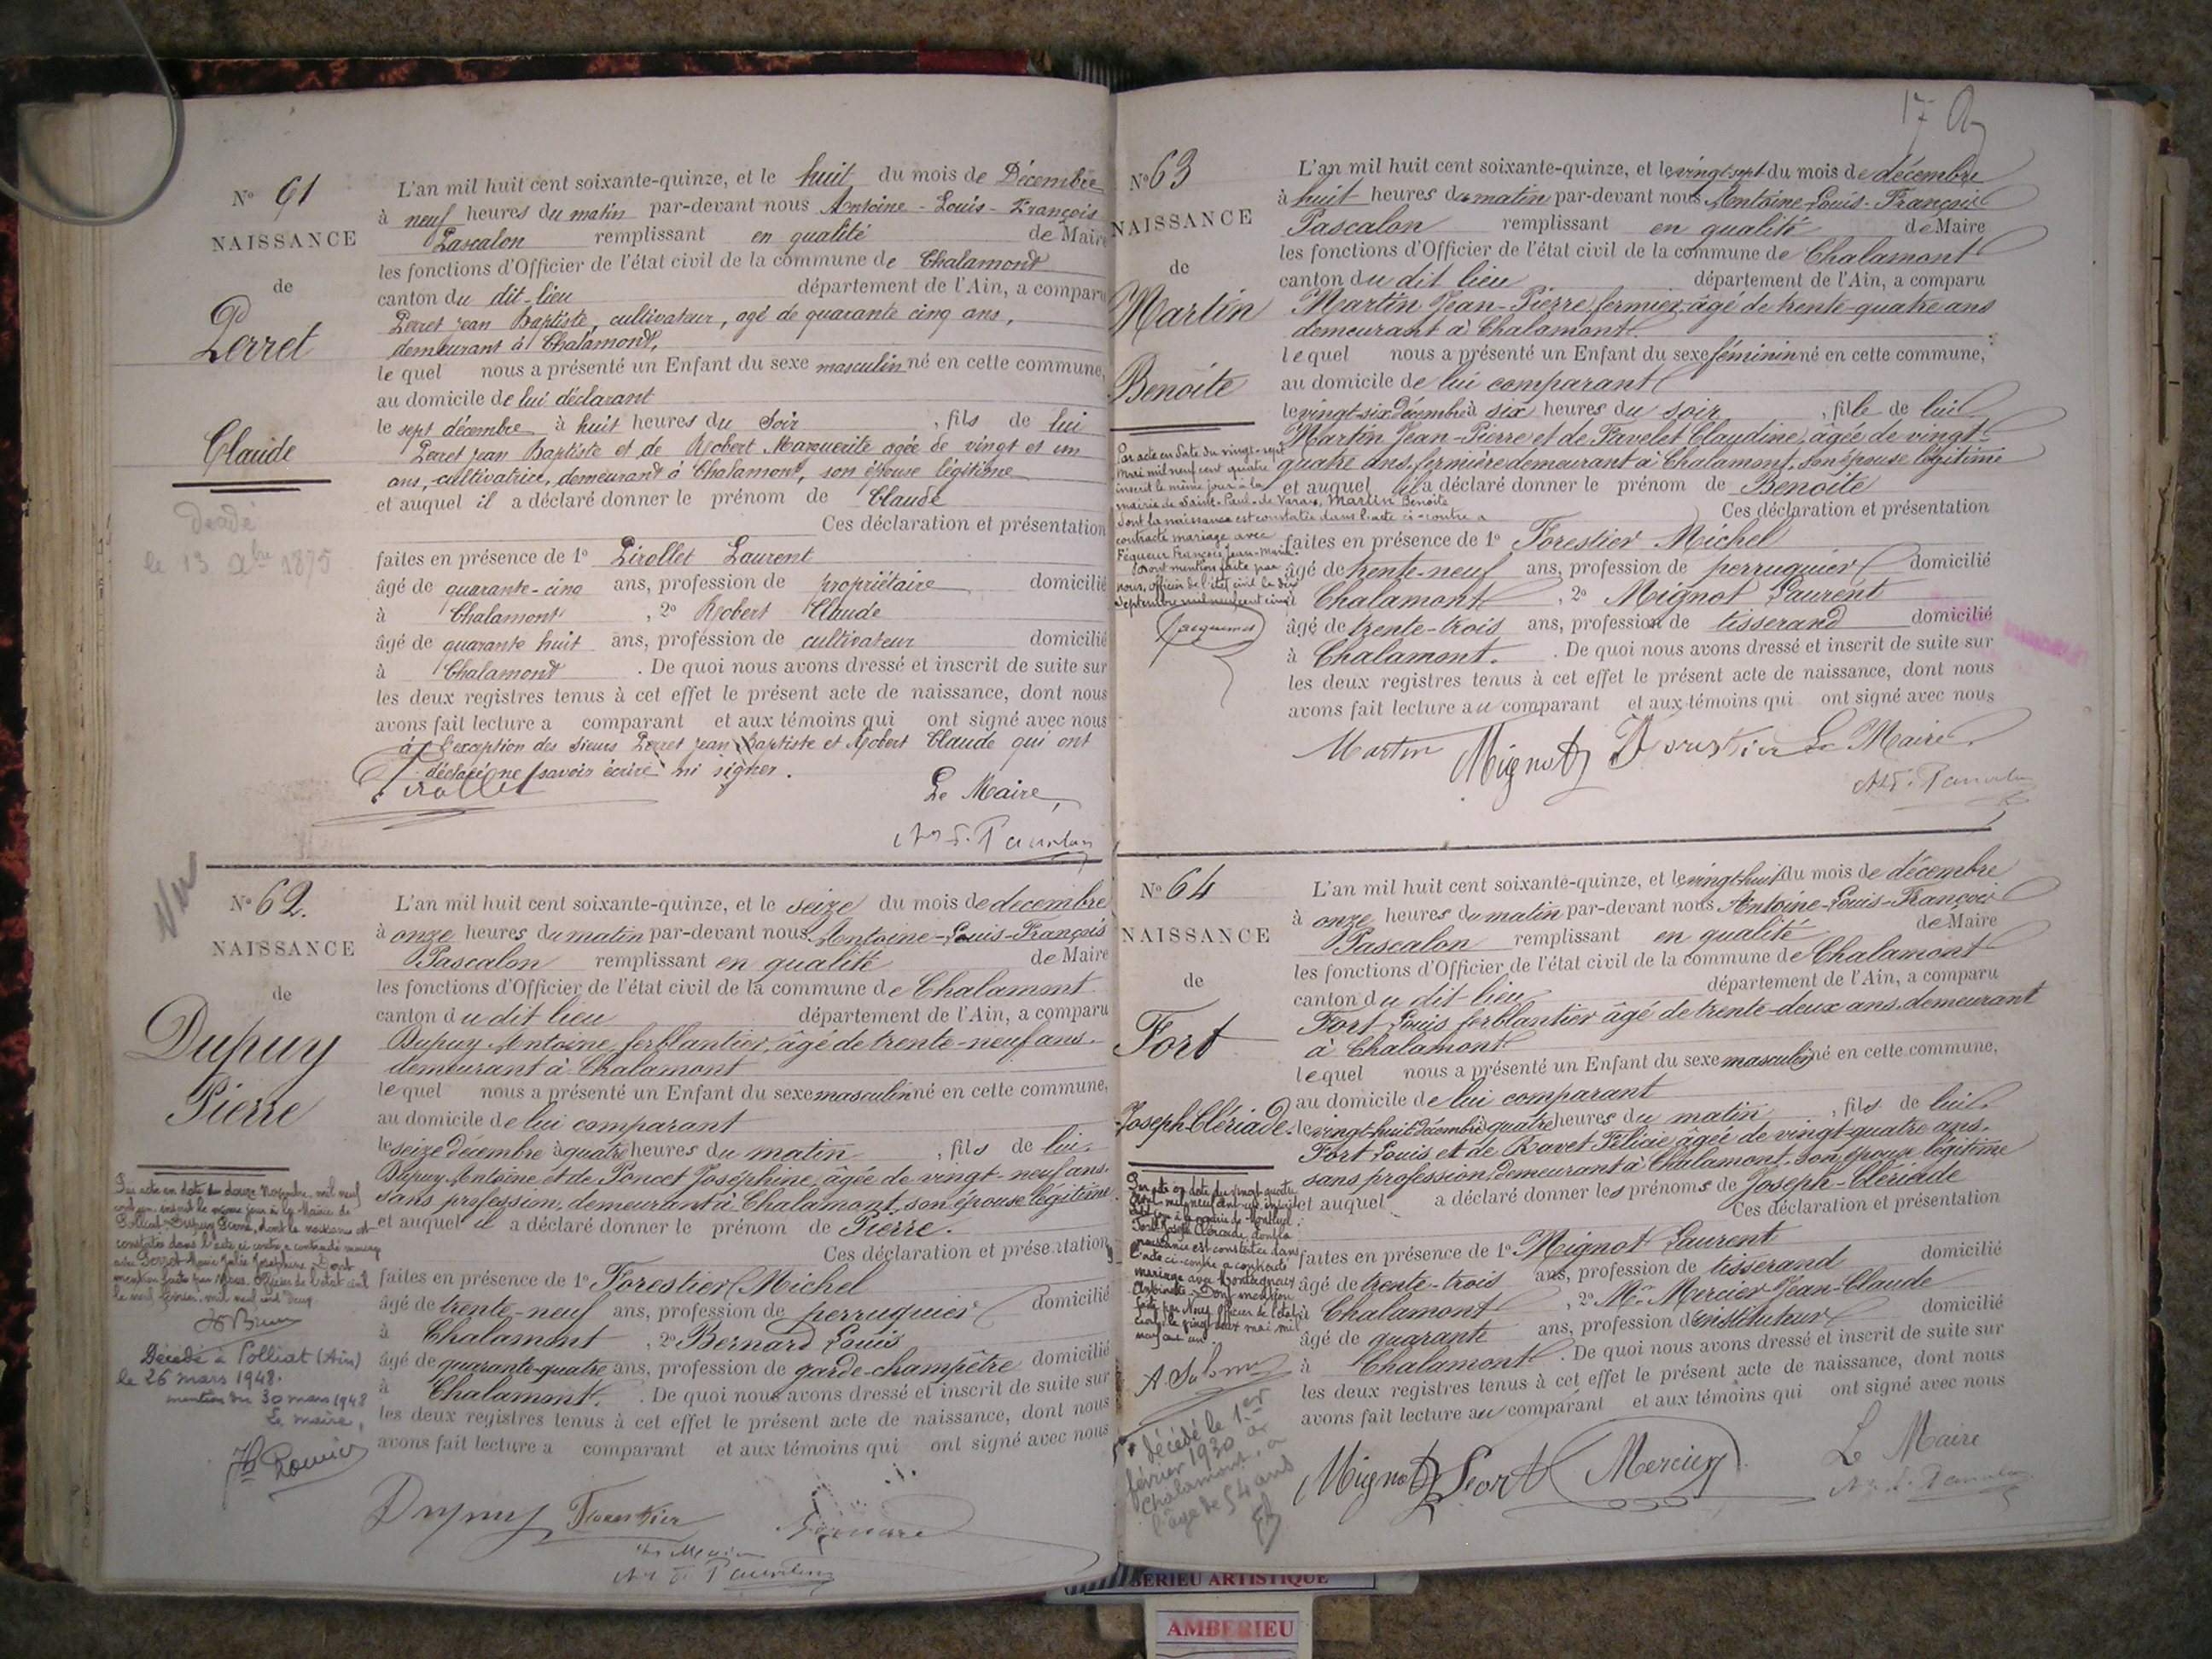 N° 61
NAISSANCE
de
Perret
Claude
décédé
le 13 Xbre 1875
L'an mil huit cent soixante-quinze, et le huit du mois de Décembre
à neuf heures du matin par-devant nous Antoine-Louis-François
Pascalon remplissant en qualité de Maire
les fonctions d'Officier de l'état civil de la commune de Chalamont
canton du dit-lieu département de l'Ain, a comparu
Perret Jean Baptiste, cultivateur, agé de quarante cinq ans,
demeurant à Chalamont,
lequel nous a présenté un Enfant du sexe masculin né en cette commune,
au domicile de lui déclarant
le sept décembre à huit heures du Soir, fils de lui
Perret Jean Baptiste et de Robert Marguerite agée de vingt et un
ans, cultivatrice, demeurant à Chalamont, son épouse légitime
et auquel il a déclaré donner le prénom de Claude
Ces déclaration et présentation
faites en présence de 1° Pirollet Laurent
âgé de quarante-cinq ans, profession de propriétaire domicilié
à Chalamont, 2° Robert Claude
âgé de quarante huit ans, profession de cultivateur domicilié
à Chalamont. De quoi nous avons dressé et inscrit de suite sur
les deux registres tenus à cet effet le présent acte de naissance, dont nous
avons fait lecture a comparant et aux témoins qui ont signé avec nous
à l'exception des sieurs Perret Jean Baptiste et Robert Claude qui ont
déclaré ne savoir écrire ni signer.
Pirollet
Le Maire,
Vu
N° 62.
NAISSANCE
de
Dupuy
Pierre
Par acte en date du douze Novembre mil neuf
cent un, inscrit le même jour à la Mairie de
Polliat Dupuy Pierre, dont la naissance est
constatée dans l'acte ci contre a contracté mariage
avec Perret Marie Julie Josephine. Dont
mention faite par Nous, Officier de l'état civil
le neuf Janvier mil neuf cent deux
Décédé à Polliat (Ain)
le 26 mars 1948.
mention du 30 mars 1948
Le maire,
L'an mil huit cent soixante-quinze, et le seize du mois de decembre
à onze heures du matin par-devant nous Antoine-Louis-François
Pascalon remplissant en qualité de Maire
les fonctions d'Officier de l'état civil de la commune de Chalamont
canton du dit lieu département de l'Ain, a comparu
Dupuy Antoine, ferblantier, âgé de trente-neuf ans.
demeurant à Chalamont
lequel nous a présenté un Enfant du sexe masculin né en cette commune,
au domicile de lui comparant
le seize décembre à quatre heures du matin, fils de lui
Dupuy Antoine et de Poncet Joséphine, âgée de vingt-neuf ans.
sans profession, demeurant à Chalamont, son épouse légitime
et auquel il a déclaré donner le prénom de Pierre.
Ces déclaration et présentation
faites en présence de 1° Forestier Michel
âgé de trente-neuf ans, profession de perruquier domicilié
à Chalamont, 2° Bernard Louis
âgé de quarante-quatre ans, profession de garde-champêtre domicilié
à Chalamont. De quoi nous avons dressé et inscrit de suite sur
les deux registres tenus à cet effet le présent acte de naissance, dont nous
avons fait lecture a comparant et aux témoins qui ont signé avec nous
Dupuy Forestier Bernard
Le Maire
17
N° 63
NAISSANCE
de
Martin
Benoite
Par acte en date du vingt-sept
Mai mil neuf cent quatre
inscrit le même jour à la
mairie de Saint-Paul-de-Varax, Martin Benoite
dont la naissance est constatée dans l'acte ci-contre a
contracté mariage avec
Féqueur François Jean-Marie
dont mention faite par
nous, officier de l'état civil le dix
Septembre mil neuf cent cinq
Jacquemet
L'an mil huit cent soixante-quinze, et le vingt sept du mois de décembre
à huit heures du matin par-devant nous Antoine Louis-François
Pascalon remplissant en qualité de Maire
les fonctions d'Officier de l'état civil de la commune de Chalamont
canton du dit lieu département de l'Ain, a comparu
Martin Jean-Pierre, fermier, âgé de trente-quatre ans
demeurant à Chalamont
lequel nous a présenté un Enfant du sexe féminin né en cette commune,
au domicile de lui comparant
le vingt-six Décembre à six heures du soir, fille de lui
Martin Jean-Pierre et de Favelet Claudine, âgée de vingt-
quatre ans, fermière demeurant à Chalamont, son épouse légitime
et auquel il a déclaré donner le prénom de Benoite
Ces déclaration et présentation
faites en présence de 1° Forestier Michel
âgé de trente-neuf ans, profession de perruquier domicilié
à Chalamont, 2° Mignot Laurent
âgé de trente-trois ans, profession de tisserand domicilié
à Chalamont. De quoi nous avons dressé et inscrit de suite sur
les deux registres tenus à cet effet le présent acte de naissance, dont nous
avons fait lecture au comparant et aux témoins qui ont signé avec nous
Martin Mignot Forestier Le Maire
N° 64
NAISSANCE
de
Fort
Joseph-Clériade
Par acte en date du vingt-quatre
Avril mil neuf cent un, inscrit
le même jour à la mairie de Montluel
Fort Joseph Clériade, dont la
naissance est constatée dans
l'acte ci-contre a contracté
mariage avec Montagneux
Antoinette - Dont mention
faite par Nous Officier de l'état
civil, le vingt deux mai mil
neuf cent un
décédé le 1er
février 1930 à
Chalamont, a
l'âge de 54 ans
L'an mil huit cent soixante-quinze, et le vingt-huit du mois de décembre
à onze heures du matin par-devant nous Antoine-Louis-François
Pascalon remplissant en qualité de Maire
les fonctions d'Officier de l'état civil de la commune de Chalamont
canton du dit-lieu département de l'Ain, a comparu
Fort Louis ferblantier âgé de trente-deux ans, demeurant
à Chalamont
lequel nous a présenté un Enfant du sexe masculin né en cette commune,
au domicile de lui comparant
le vingt-huit décembre à quatre heures du matin, fils de lui
Fort Louis et de Ravet Félicie âgée de vingt-quatre ans,
sans profession, demeurant à Chalamont, son épouse légitime
et auquel a déclaré donner les prénoms de Joseph-Clériade
Ces déclaration et présentation
faites en présence de 1° Mignot Laurent
âgé de trente-trois ans, profession de tisserand domicilié
à Chalamont, 2° Mr Mercier Jean-Claude
âgé de quarante ans, profession d'instituteur domicilié
à Chalamont. De quoi nous avons dressé et inscrit de suite sur
les deux registres tenus à cet effet le présent acte de naissance, dont nous
avons fait lecture au comparant et aux témoins qui ont signé avec nous
Mignot Fort Mercier Le Maire
BERIEU ARTISTIQUE
AMBERIEU